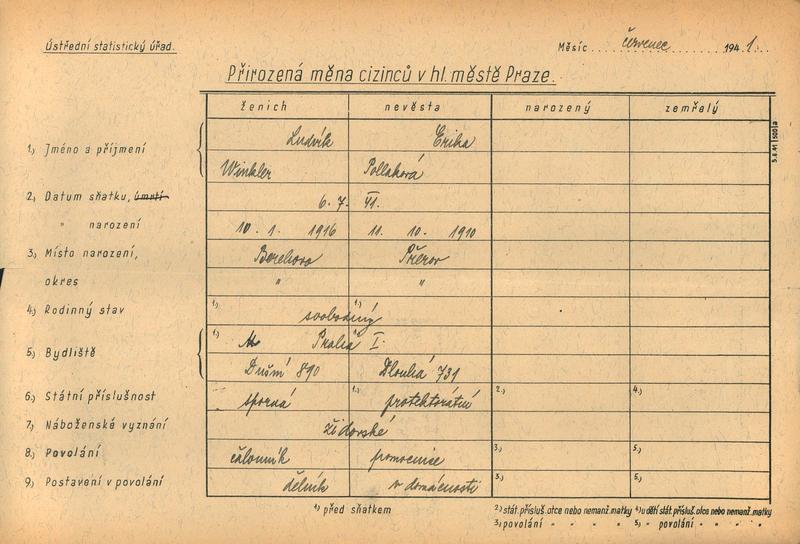 Ústřední statistický úřad.
Měsíc červenec 1941.
Přirozená měna cizinců v hl. městě Praze.
ženich nevěsta narozený zemřelý
1,) Jméno a příjmení
Ludvík Erika
Winkler Pollaková
2,) Datum sňatku, úmrtí 6. 7. 41.
" narození 10. 1. 1916 11. 10. 1910
3,) Místo narození, Berehovo Přerov
okres " "
4,) Rodinný stav 1,) svobodný 1,)
5,) Bydliště
1,) Praha I.
Dušní 890 Dlouhá 731
6,) Státní příslušnost sporná 1,) protektorátní 2,) 4,)
7,) Náboženské vyznání židovské
8,) Povolání čalouník pomocnice 3,) 5,)
9,) Postavení v povolání dělník v domácnosti 3,) 5,)
1,) před sňatkem
2,) stát. přísluš. otce nebo nemanž. matky 4,) u dětí stát. přísluš. otce nebo nemanž. matky
3,) povolání " " " " 5,) povolání " " " "